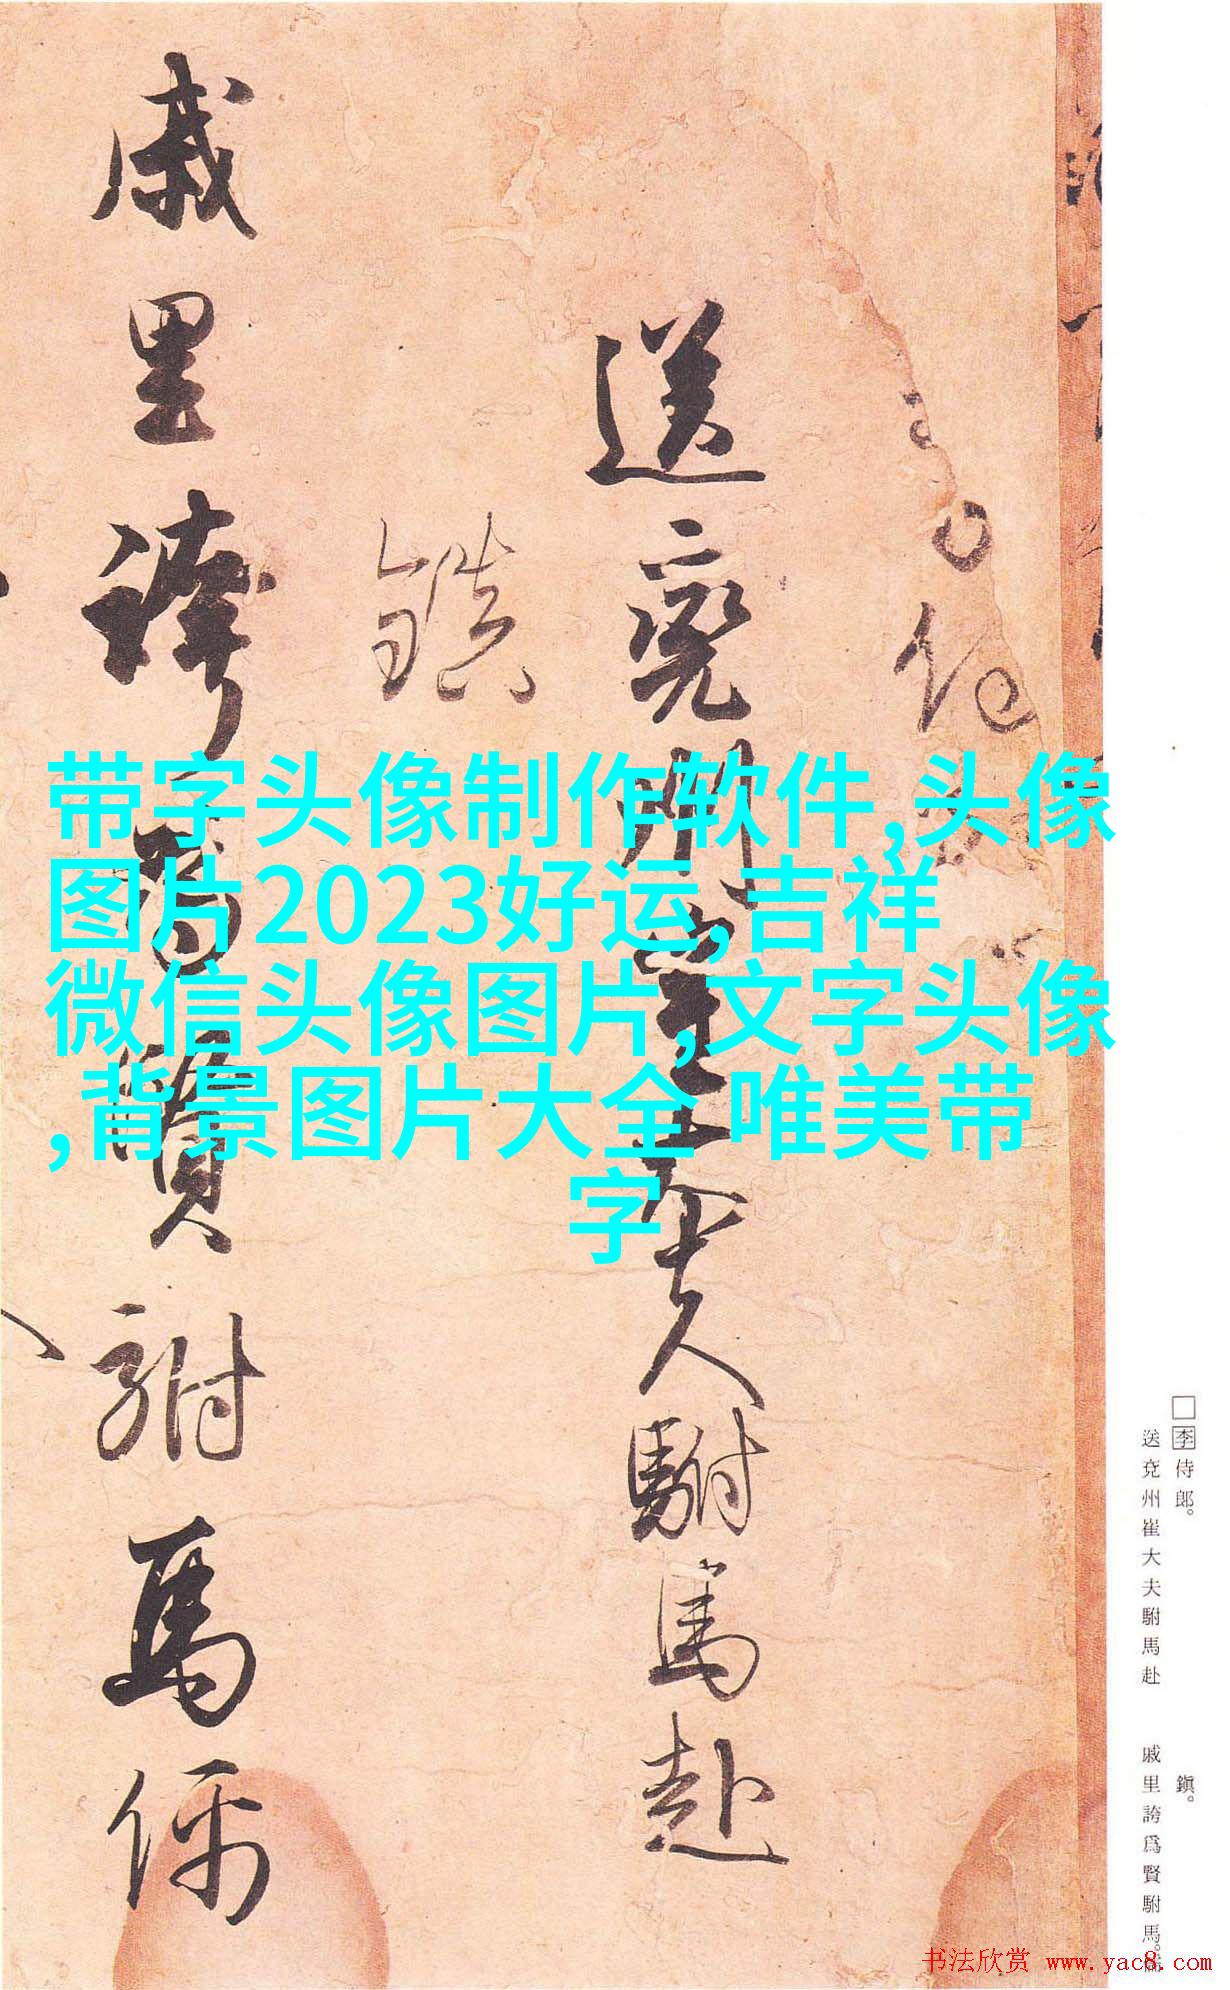 送兗州崔大夫駙馬赴
鎮
戚里誇為賢駙馬儒
带字头像制作软件,头像
图片2023好运,吉祥
微信头像图片,文字头像
,背景图片大全 唯美带
字
□李侍郎。
送兗州崔大夫駙馬赴
鎮。
戚里誇爲賢駙馬。
书法欣赏 www.yac8.com